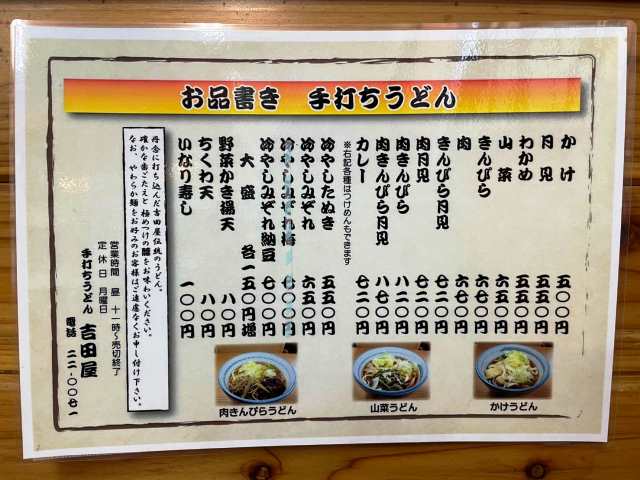 お品書き 手打ちうどん
かけ 五〇〇円
月見 五五〇円
わかめ 五五〇円
山菜 五五〇円
きんぴら 六七〇円
肉 六七〇円
きんぴら月見 七二〇円
肉月見 七二〇円
肉きんぴら 八二〇円
肉きんぴら月見 八七〇円
カレー 七二〇円
※右記各種はつけめんもできます
冷やしたぬき 五五〇円
冷やしみぞれ 六五〇円
冷やしみぞれ梅 七〇〇円
冷やしみぞれ納豆 七〇〇円
大盛 各一五〇円増
野菜かき揚天 八〇円
ちくわ天 八〇円
いなり寿し 一〇〇円
丹念に打ち込んだ吉田屋伝統のうどん。
確かな歯ごたえと極めつけの麺をお味わいください。
なお、やわらか麺をお好みのお客様はご遠慮なくお申し付け下さい。
営業時間 昼 十一時〜売切終了
定休日 月曜日
手打ちうどん 吉田屋
電話 二二-〇〇七一
肉きんぴらうどん
山菜うどん
かけうどん